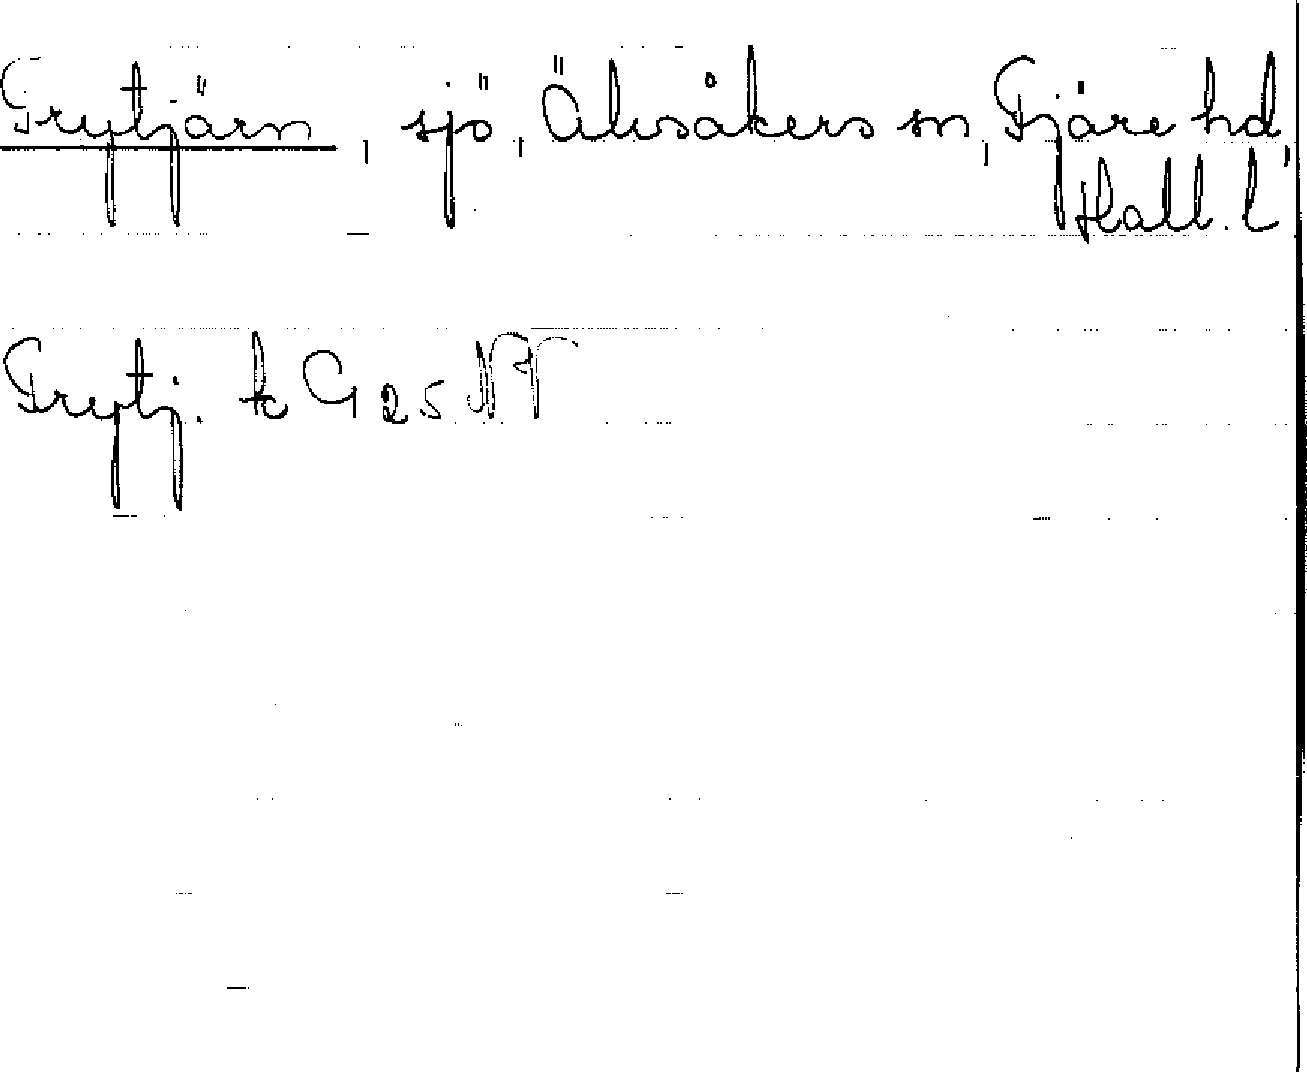 Trytjärn, sjö, Älvsåkers sn, Fjäre hd,
Hall. l
Trytj. tc G 25